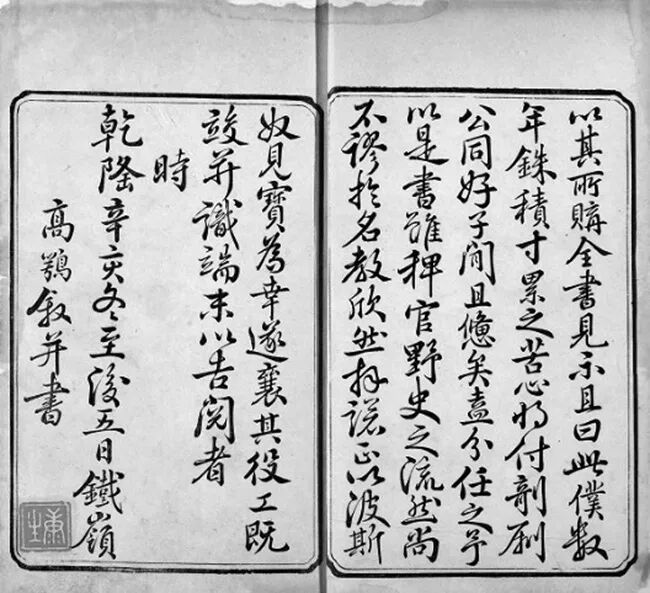 以其所購全書見示且曰此僕數
年銖積寸累之苦心將付剞劂
公同好子閒且憊矣盍分任之予
以是書雖稗官野史之流然尚
不謬於名教欣然拜諾正以波斯
奴見寶為幸遂襄其役工既
竣并識端末以告閱者
時
乾隆辛亥冬至後五日鐵嶺
高鶚敘并書